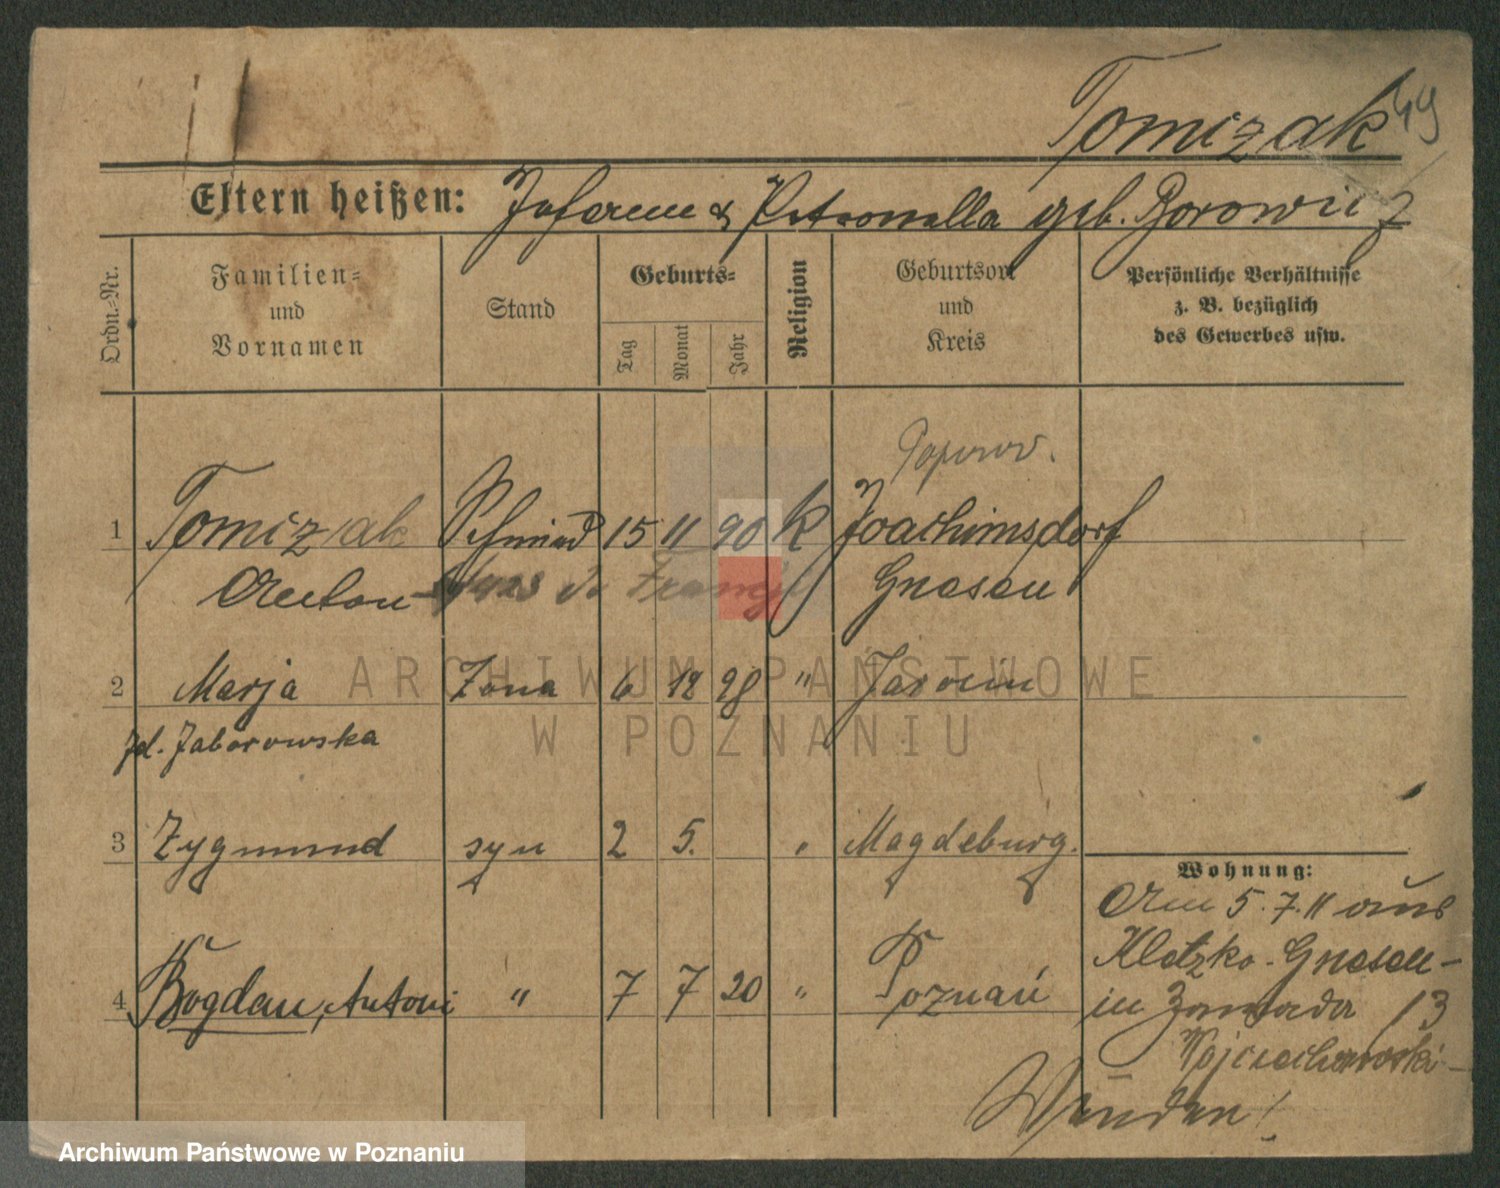 Tomczak 49
Eltern heißen: & Petronella geb. Borowicz
Ordn.-Nr.
Familien- und Vornamen
Stand
Geburts-
Tag
Monat
Jahr
Religion
Geburtsort und Kreis
Persönliche Verhältnisse
z. B. bezüglich
des Gewerbes usw.
Poporow.
1 Tomczak Schmied 15 11 90 k Joachimsdorf
Anton 1923 do Francji Gnesen
2 Marja Żona 6 12 98 " Jarocin
zd. Zaborowska
3 Zygmund syn 2 5. " Magdeburg.
Wohnung:
Am 5.7.11 aus
Kletzko-Gnesen-
in Zawader 13
Wojciechowski-
4 Bogdan, Antoni " 7 7 20 " Poznań
Wenden!
ARCHIWUM PAŃSTWOWE
W POZNANIU
Archiwum Państwowe w Poznaniu